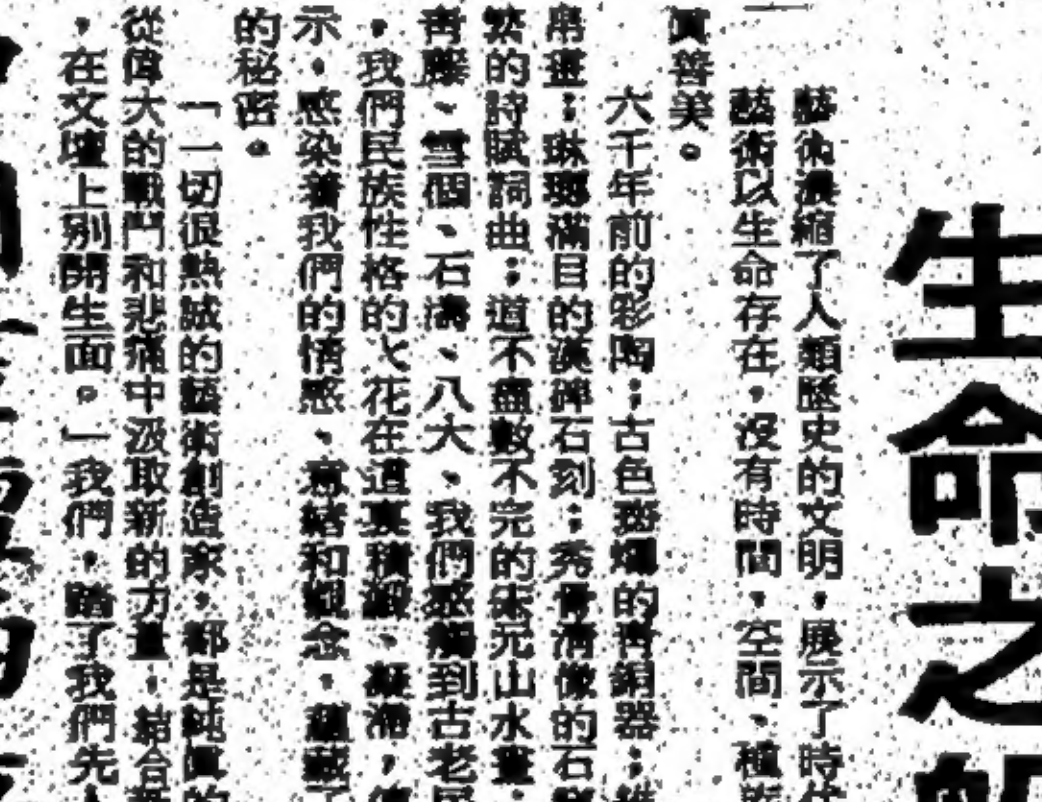 生命之
藝術濃縮了人類歷史的文明，展示了時代
藝術以生命存在，沒有時間，空間、種族
真善美。
六千年前的彩陶；古色斑爛的青銅器；
帛畫；琳瑯滿目的漢碑石刻；秀骨清像的石
繁的詩賦詞曲；道不盡數不完的宋元山水畫，
青藤、雪個、石濤、八大、我們感觸到古老民
，我們民族性格的火花在這裏積澱、凝沸，
示，感染着我們的情感、意緒和觀念，蘊藏了
的秘密。
「一切很熱誠的藝術創造家，都是純真的
從偉大的戰鬥和悲痛中汲取新的力量，結合
，在文壇上別開生面。」我們，踏了我們先